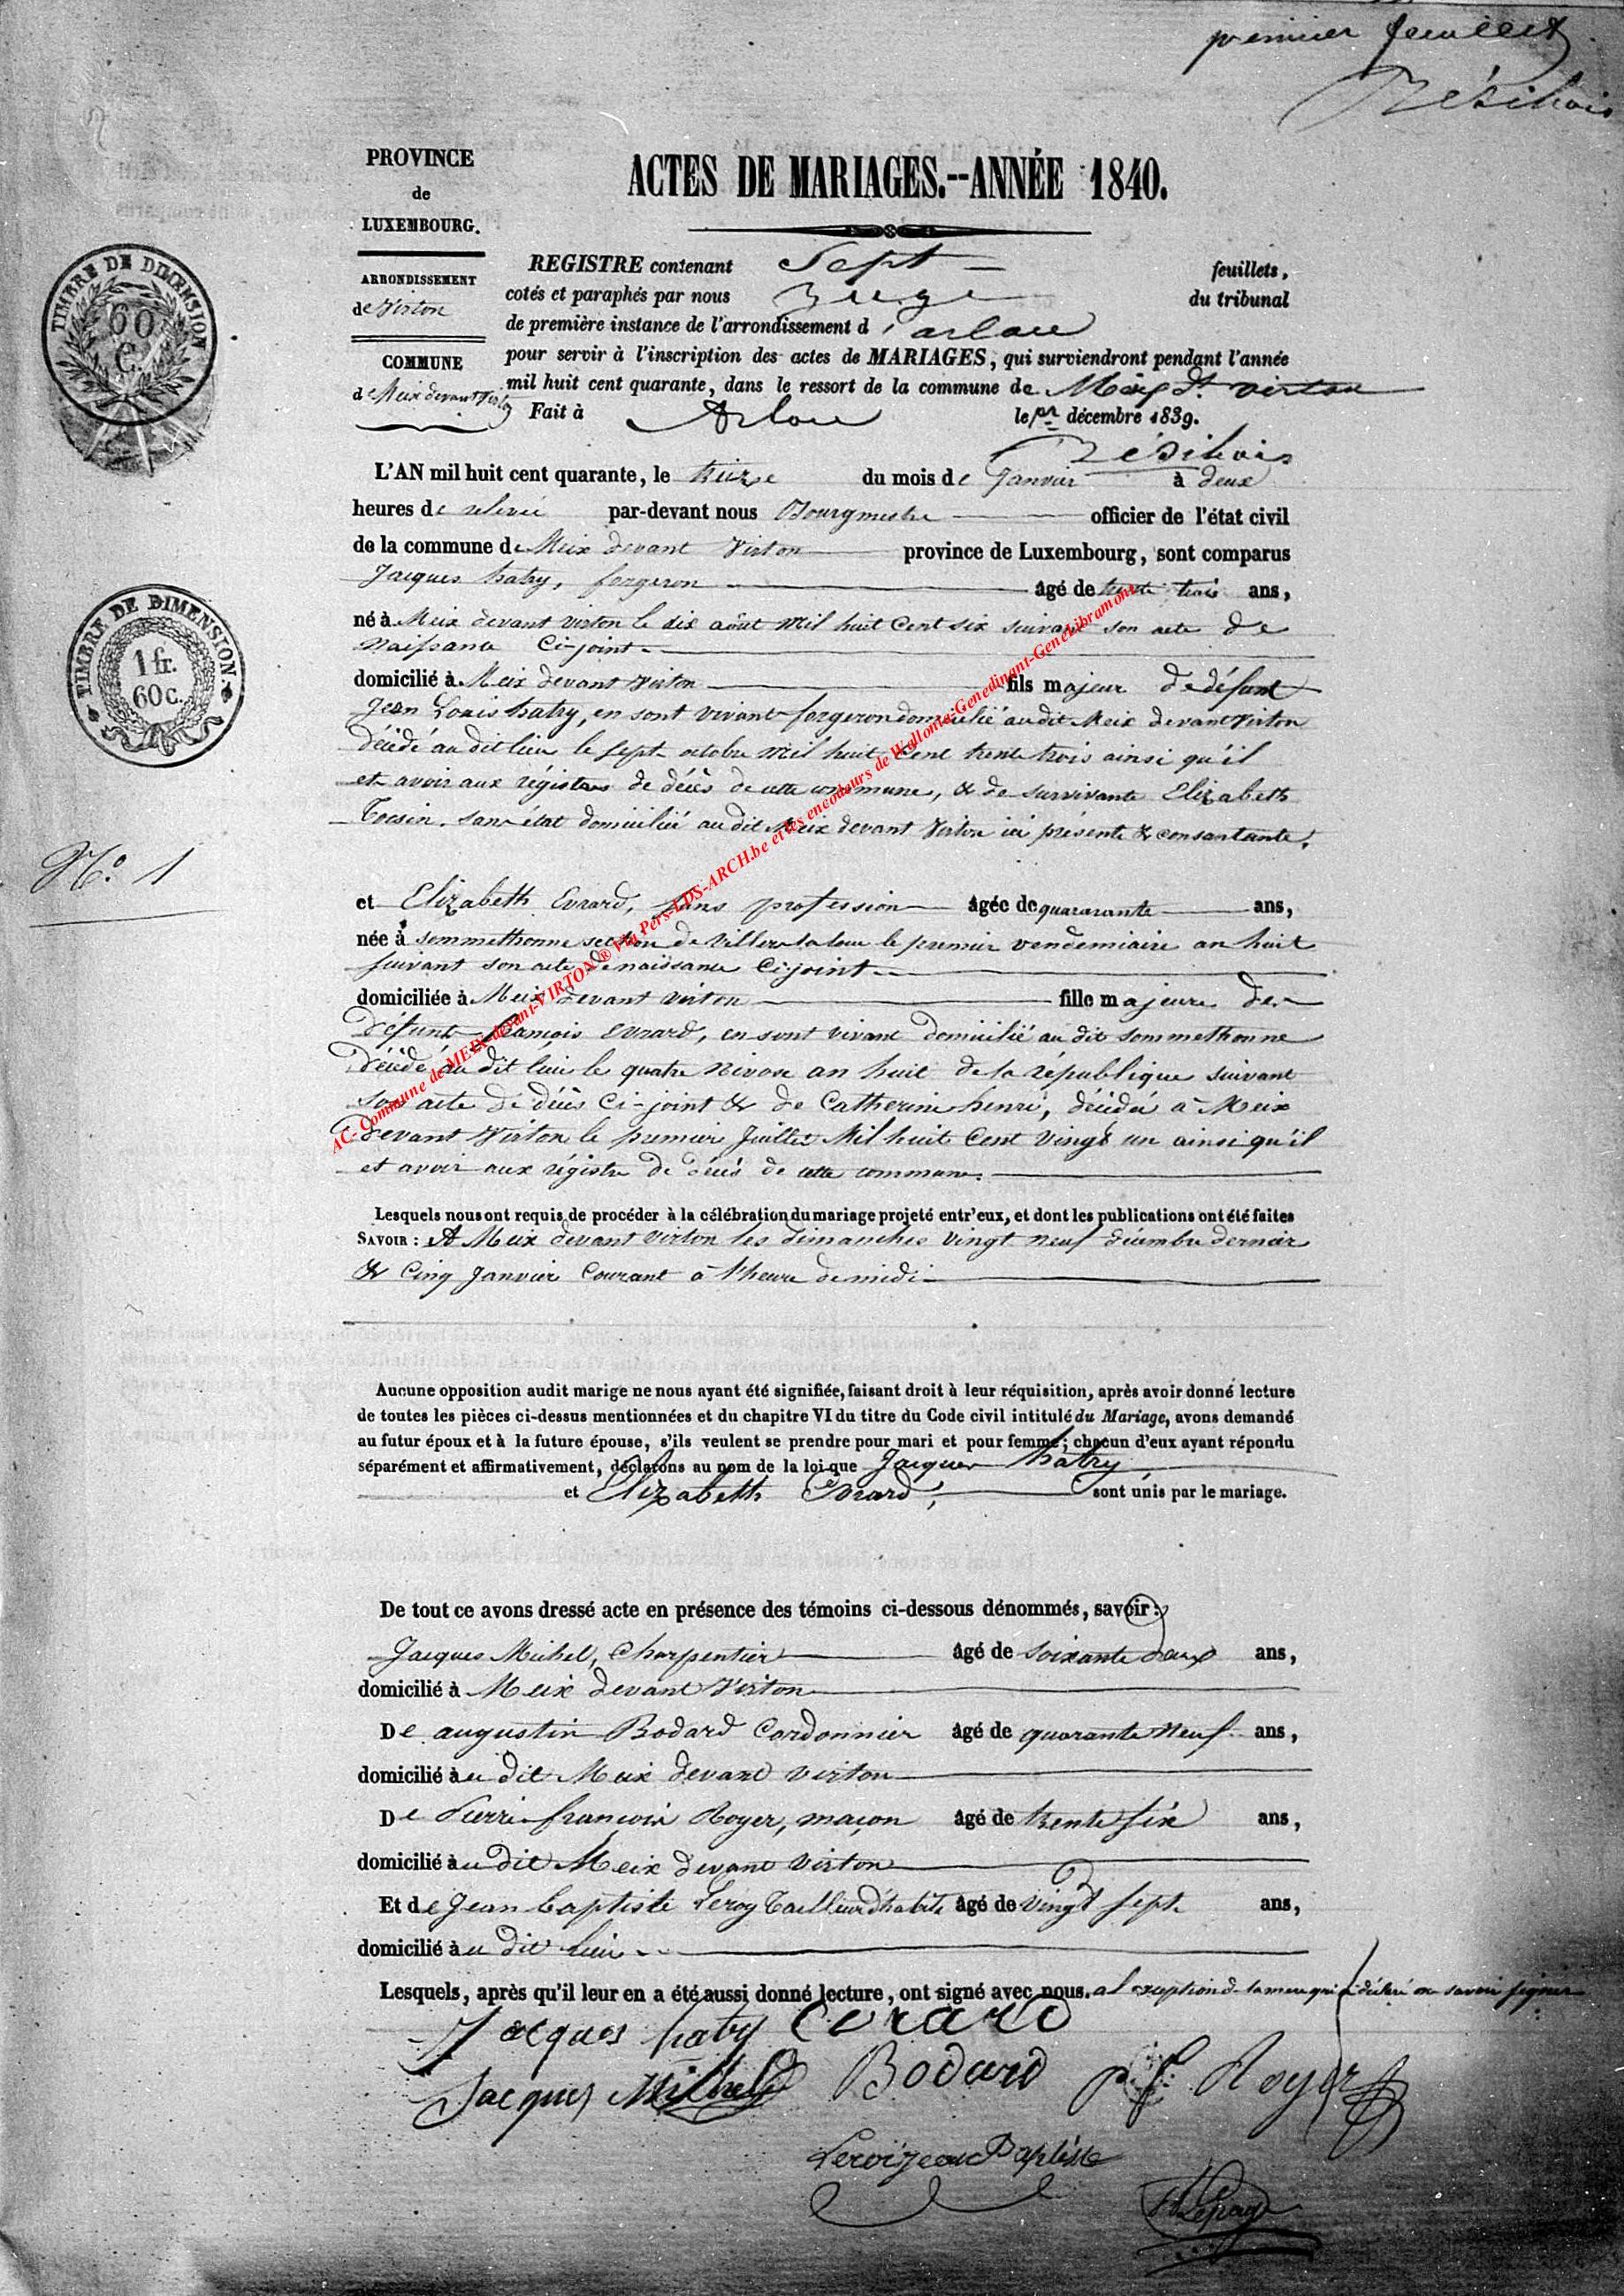 premier feuillet
PROVINCE
de
LUXEMBOURG.
ARRONDISSEMENT
de Virton
COMMUNE
de Meix devant Virton
TIMBRE DE DIMENSION
60
C.
TIMBRE DE DIMENSION.
1 fr.
60 c.
ACTES DE MARIAGES.--ANNÉE 1840.
REGISTRE contenant Sept feuillets,
cotés et paraphés par nous Juge du tribunal
de première instance de l'arrondissement d'arlon
pour servir à l'inscription des actes de MARIAGES, qui surviendront pendant l'année
mil huit cent quarante, dans le ressort de la commune de Meix dt. virton
Fait à Arlon le pr décembre 1839.
L'AN mil huit cent quarante, le treize du mois de Janvier à deux
heures de relevée par-devant nous Bourgmestre officier de l'état civil
de la commune de Meix devant Virton province de Luxembourg, sont comparus
Jacques hatry, forgeron âgé de trente trois ans,
né à Meix devant virton le dix août mil huit Cent six suivant son acte de
Naissance Ci-joint.
domicilié à Meix devant Virton fils majeur de défunt
Jean Louis hatry, en sont vivant forgeron domicilié audit Meix devant Virton
décédé au dit lieu le sept octobre mil huit Cent trente trois ainsi qu'il
et avoir aux régistres de décès de cette commune, & de survivante Elizabeth
Tocsin, sans état domiciliée au dit Meix devant Virton ici présente & consantante.
N.° 1
et Elizabeth Evrard, sans profession âgée de quararante ans,
née à Sommethonne section de Villers la loue le premier vendemiaire an huit
suivant son acte de naissance Ci-joint.
domiciliée à Meix devant virton fille majeure de
défunt françois Evrard, en sont vivant domicilié au dit Sommethonne
décédé au dit lieu le quatre Nivose an huit de la république suivant
son acte de décès Ci-joint & de Catherine henri, décédée à Meix
devant Virton le premier Juillet Mil huit Cent vingt un ainsi qu'il
et avoir aux régistre de décès de cette commune.
Lesquels nous ont requis de procéder à la célébration du mariage projeté entr'eux, et dont les publications ont été faites
SAVOIR : A Meix devant virton les dimanches vingt neuf décembre dernier
& Cinq Janvier Courant à l'heure de midi
Aucune opposition audit marige ne nous ayant été signifiée, faisant droit à leur réquisition, après avoir donné lecture
de toutes les pièces ci-dessus mentionnées et du chapitre VI du titre du Code civil intitulé du Mariage, avons demandé
au futur époux et à la future épouse, s'ils veulent se prendre pour mari et pour femme; chacun d'eux ayant répondu
séparément et affirmativement, déclarons au nom de la loi que Jacques hatry
et Elizabeth Evrard, sont unis par le mariage.
De tout ce avons dressé acte en présence des témoins ci-dessous dénommés, savoir:
Jacques Michel, Charpentier âgé de soixante deux ans,
domicilié à Meix devant Virton
De augustin Bodard Cordonnier âgé de quarante Neuf ans,
domicilié àu dit Meix devant virton
De Pierre françois Royer, maçon âgé de trente six ans,
domicilié àu dit Meix devant virton
Et de Jean baptiste Leroy Tailleur d'habits âgé de vingt sept ans,
domicilié àu dit lieu
Lesquels, après qu'il leur en a été aussi donné lecture, ont signé avec nous. a l'exception d la mere qui a déclaré ne savoir signer
Jacques hatry Evrard
Jacques Michel Bodard p. f. Royer
Leroi Jean Baptiste
Lepage
AC-Commune de MEIX-devant-VIRTON ® Via Pers-LDS-ARCH.be et les encodeurs de Wallonie-Genedinant-GeneLibramont